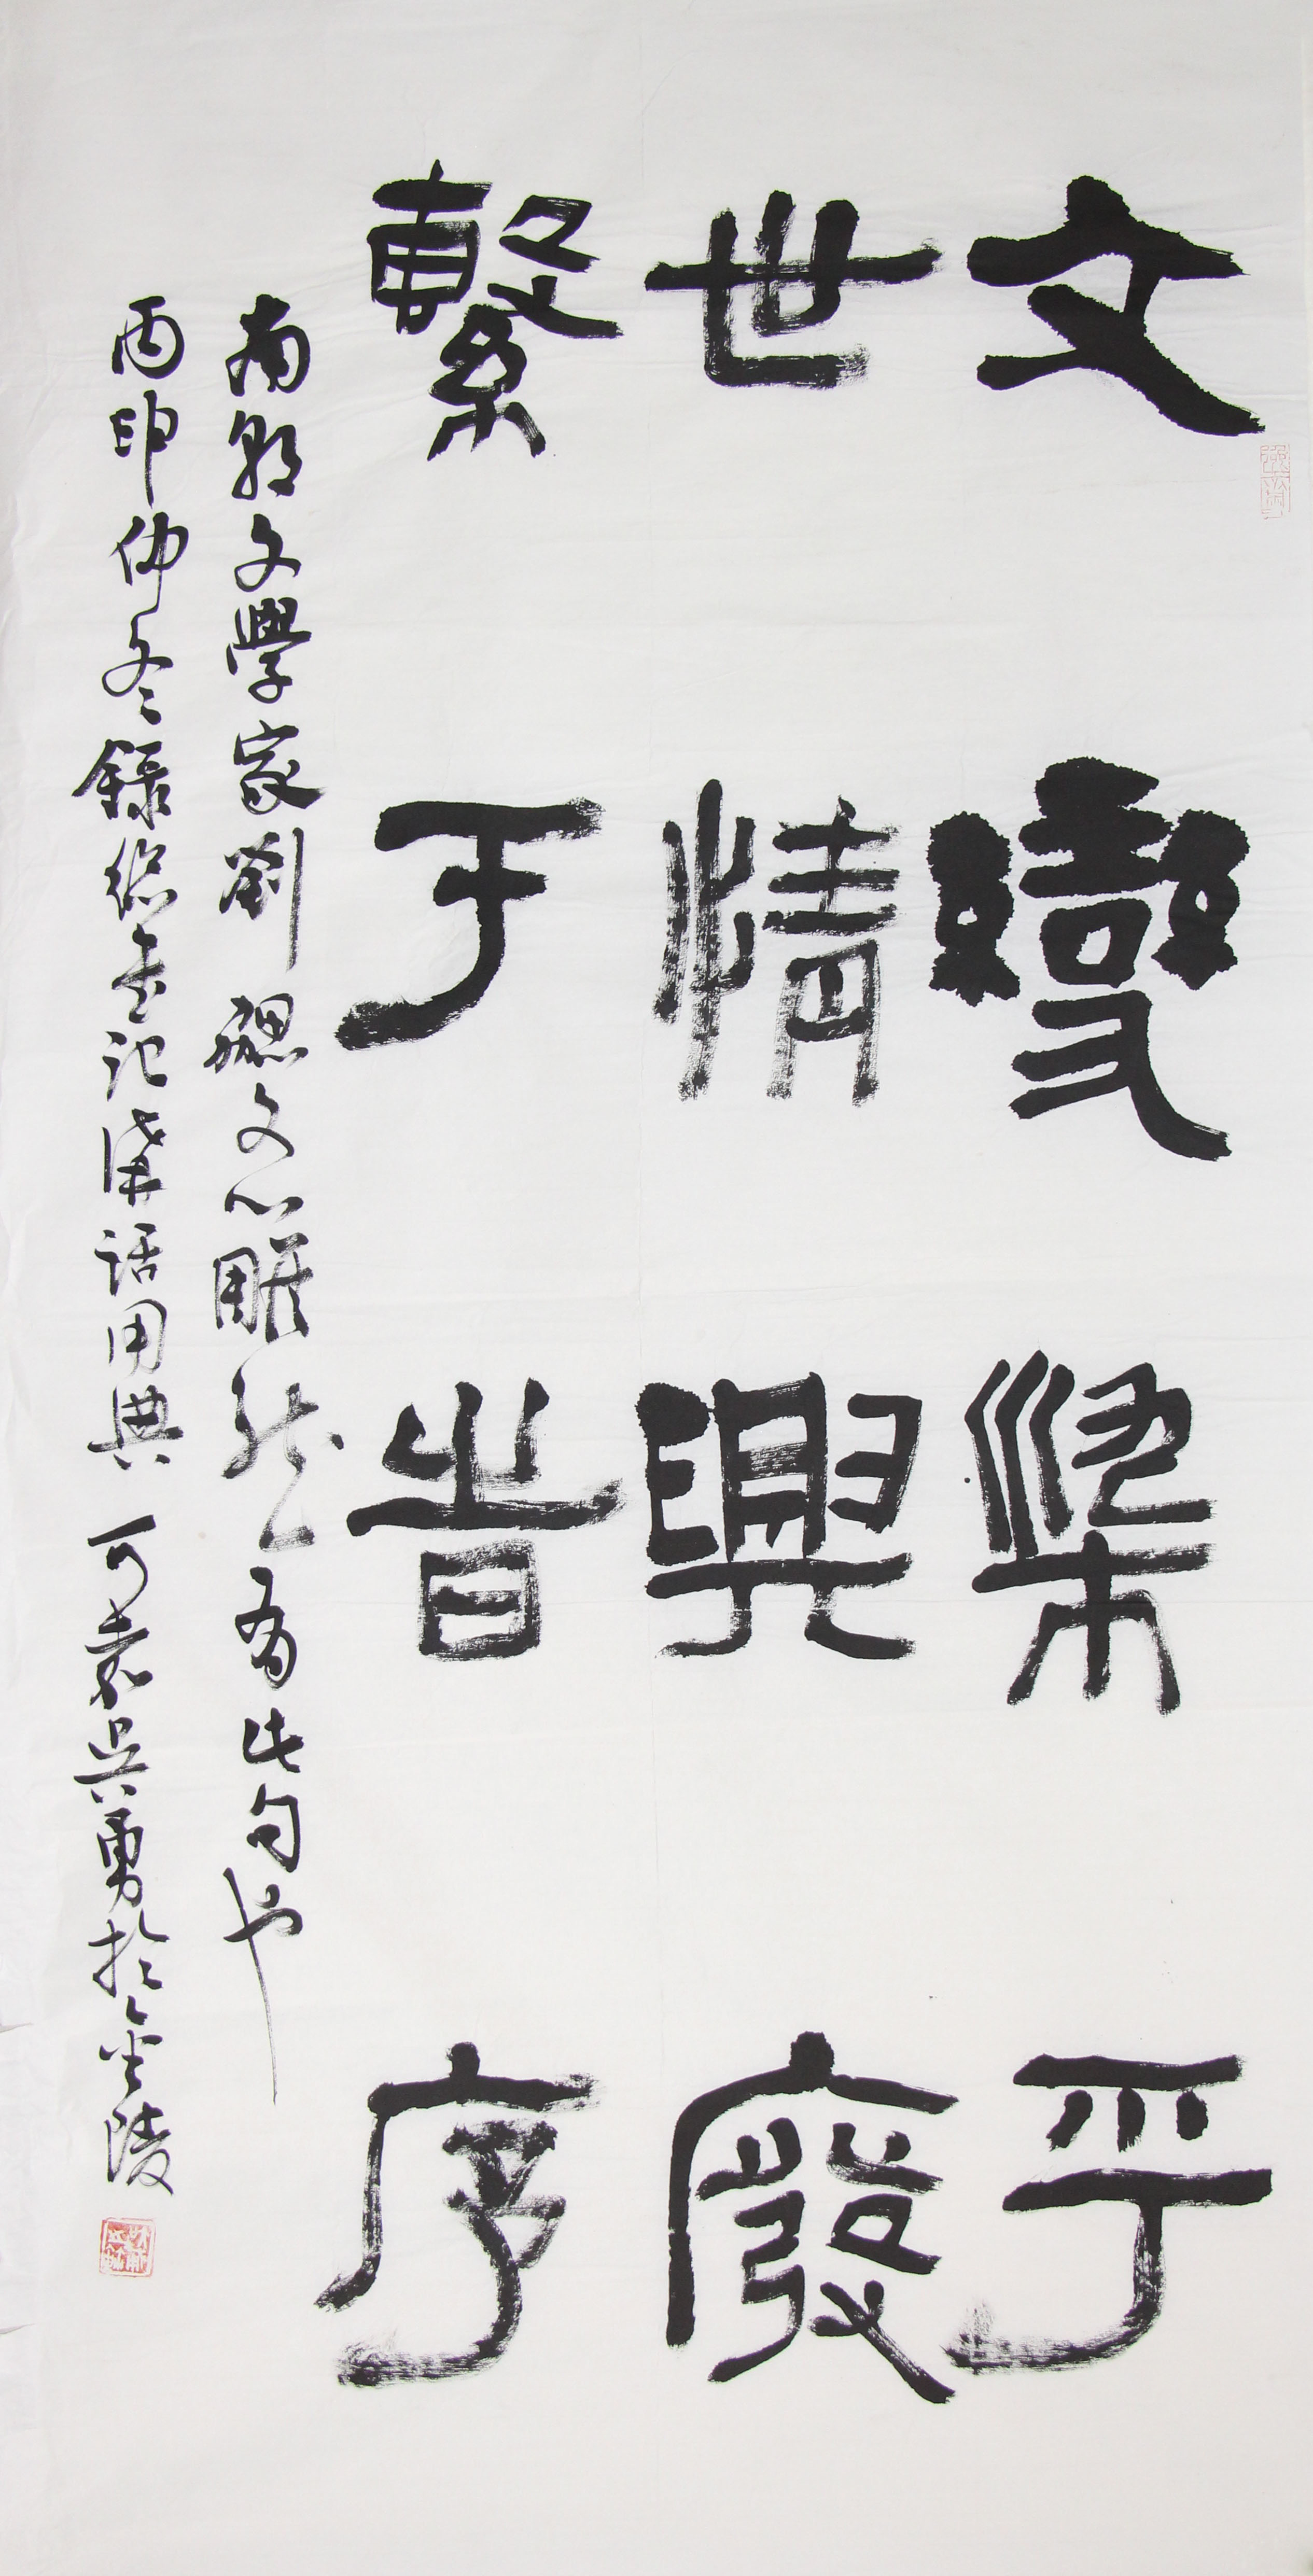 文變染乎
世情興廢
繫于旹序
南朝文學家劉勰文心雕龍有此句也
丙申仲冬錄總書記講話用典 可吳勇於金陵